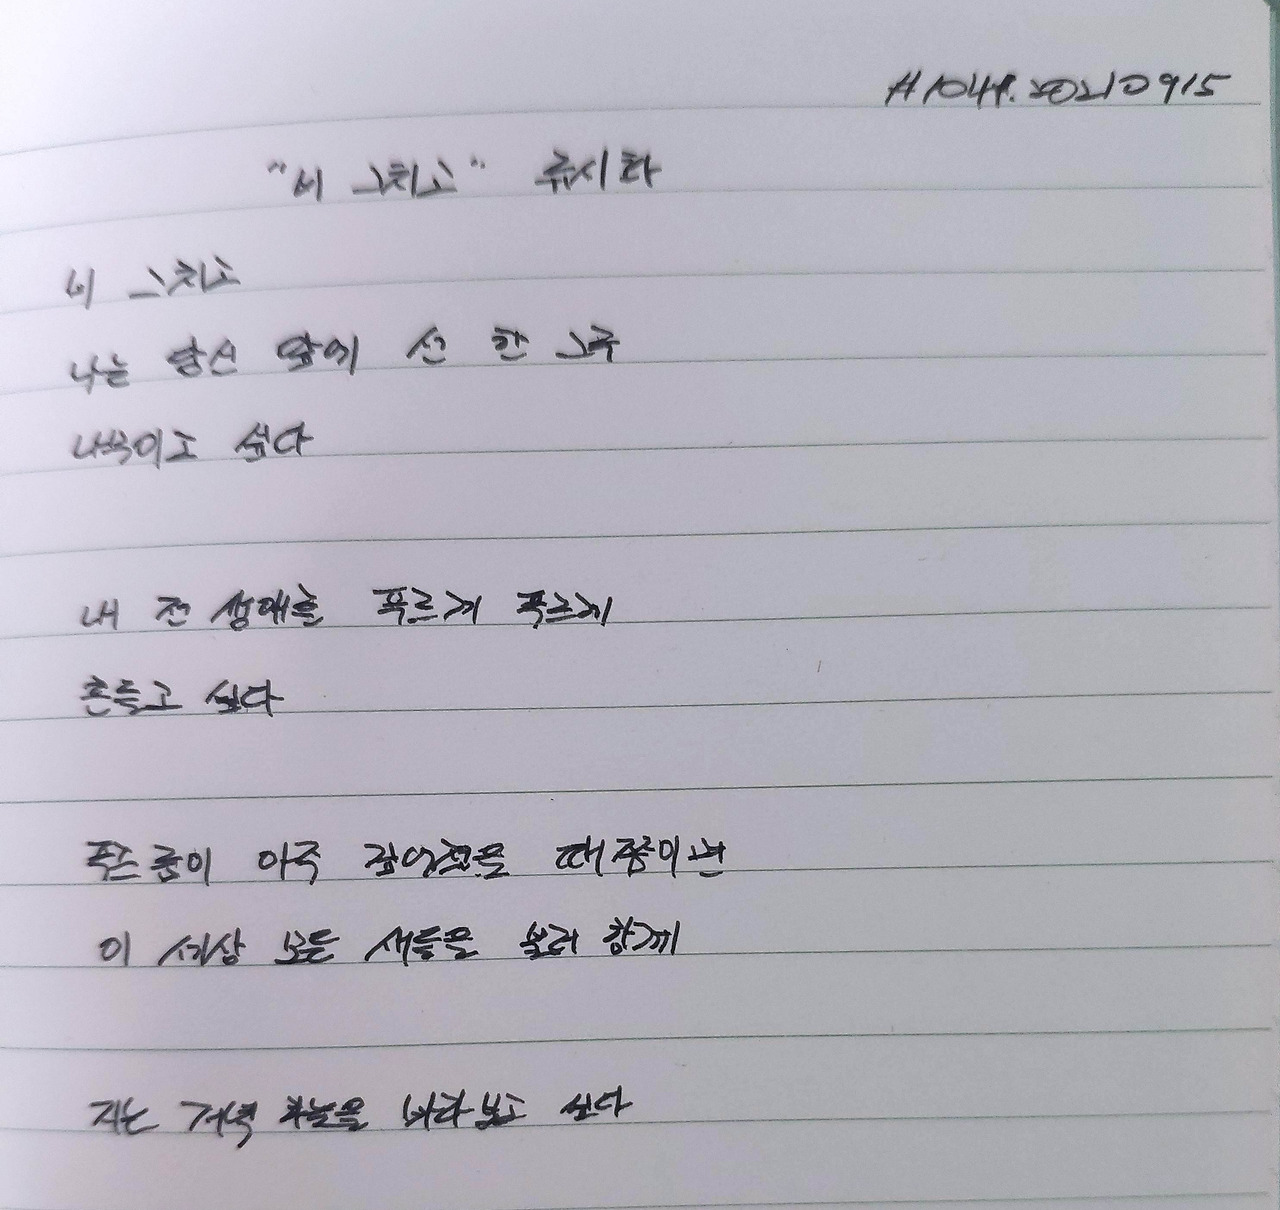 #1044. 20210915
"비 그치고" 류시화
비 그치고
나는 당신 앞에 선 한 그루
나무이고 싶다
내 전 생애를 푸르게 푸르게
흔들고 싶다
푸르름이 아주 깊어졌을 때쯤이면
이 세상 모든 새들을 불러 함께
지는 저녁 하늘을 바라보고 싶다